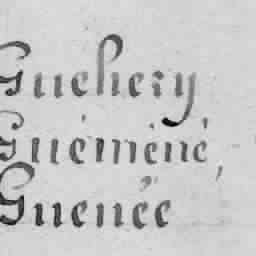 Guehery,
Guéméné,
Guenée